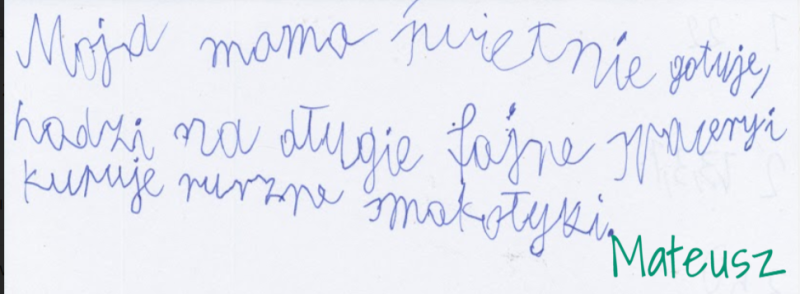 Moja mama świetnie gotuje,
hodzi na długie fajne spacery i
kupuje rurzne smakołyki.
Mateusz